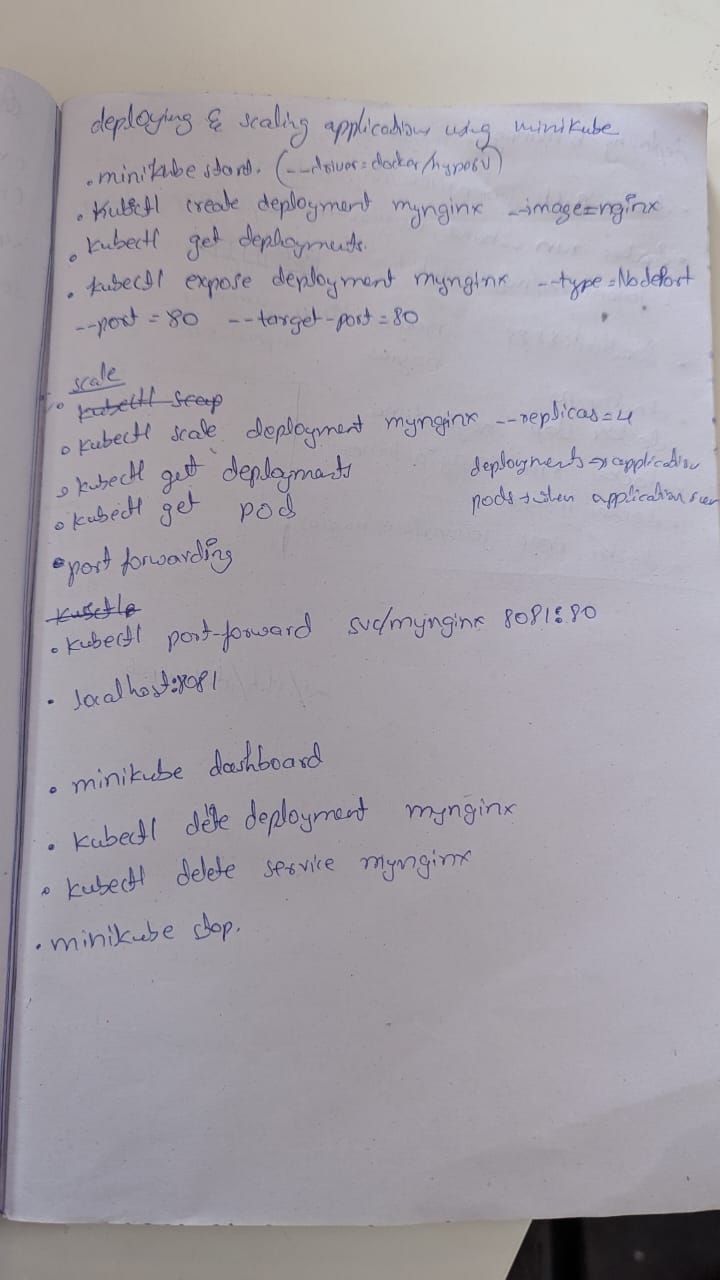 deploying & scaling applications using minikube
. minikube start. (--driver=docker/hyperv)
. Kubectl create deployment mynginx --image=nginx
. kubectl get deployments.
. kubectl expose deployment mynginx --type=NodePort
--port = 80 --target-port = 80
scale
kubectl
• kubectl scale deployment mynginx --replicas=4
• kubectl get deployments deployments → application
• kubectl get pod pods → when application
• port forwarding
• kubectl port-forward svc/mynginx 8081:80
• localhost:8081
• minikube dashboard
• kubectl delete deployment mynginx
• kubectl delete service mynginx
• minikube stop.